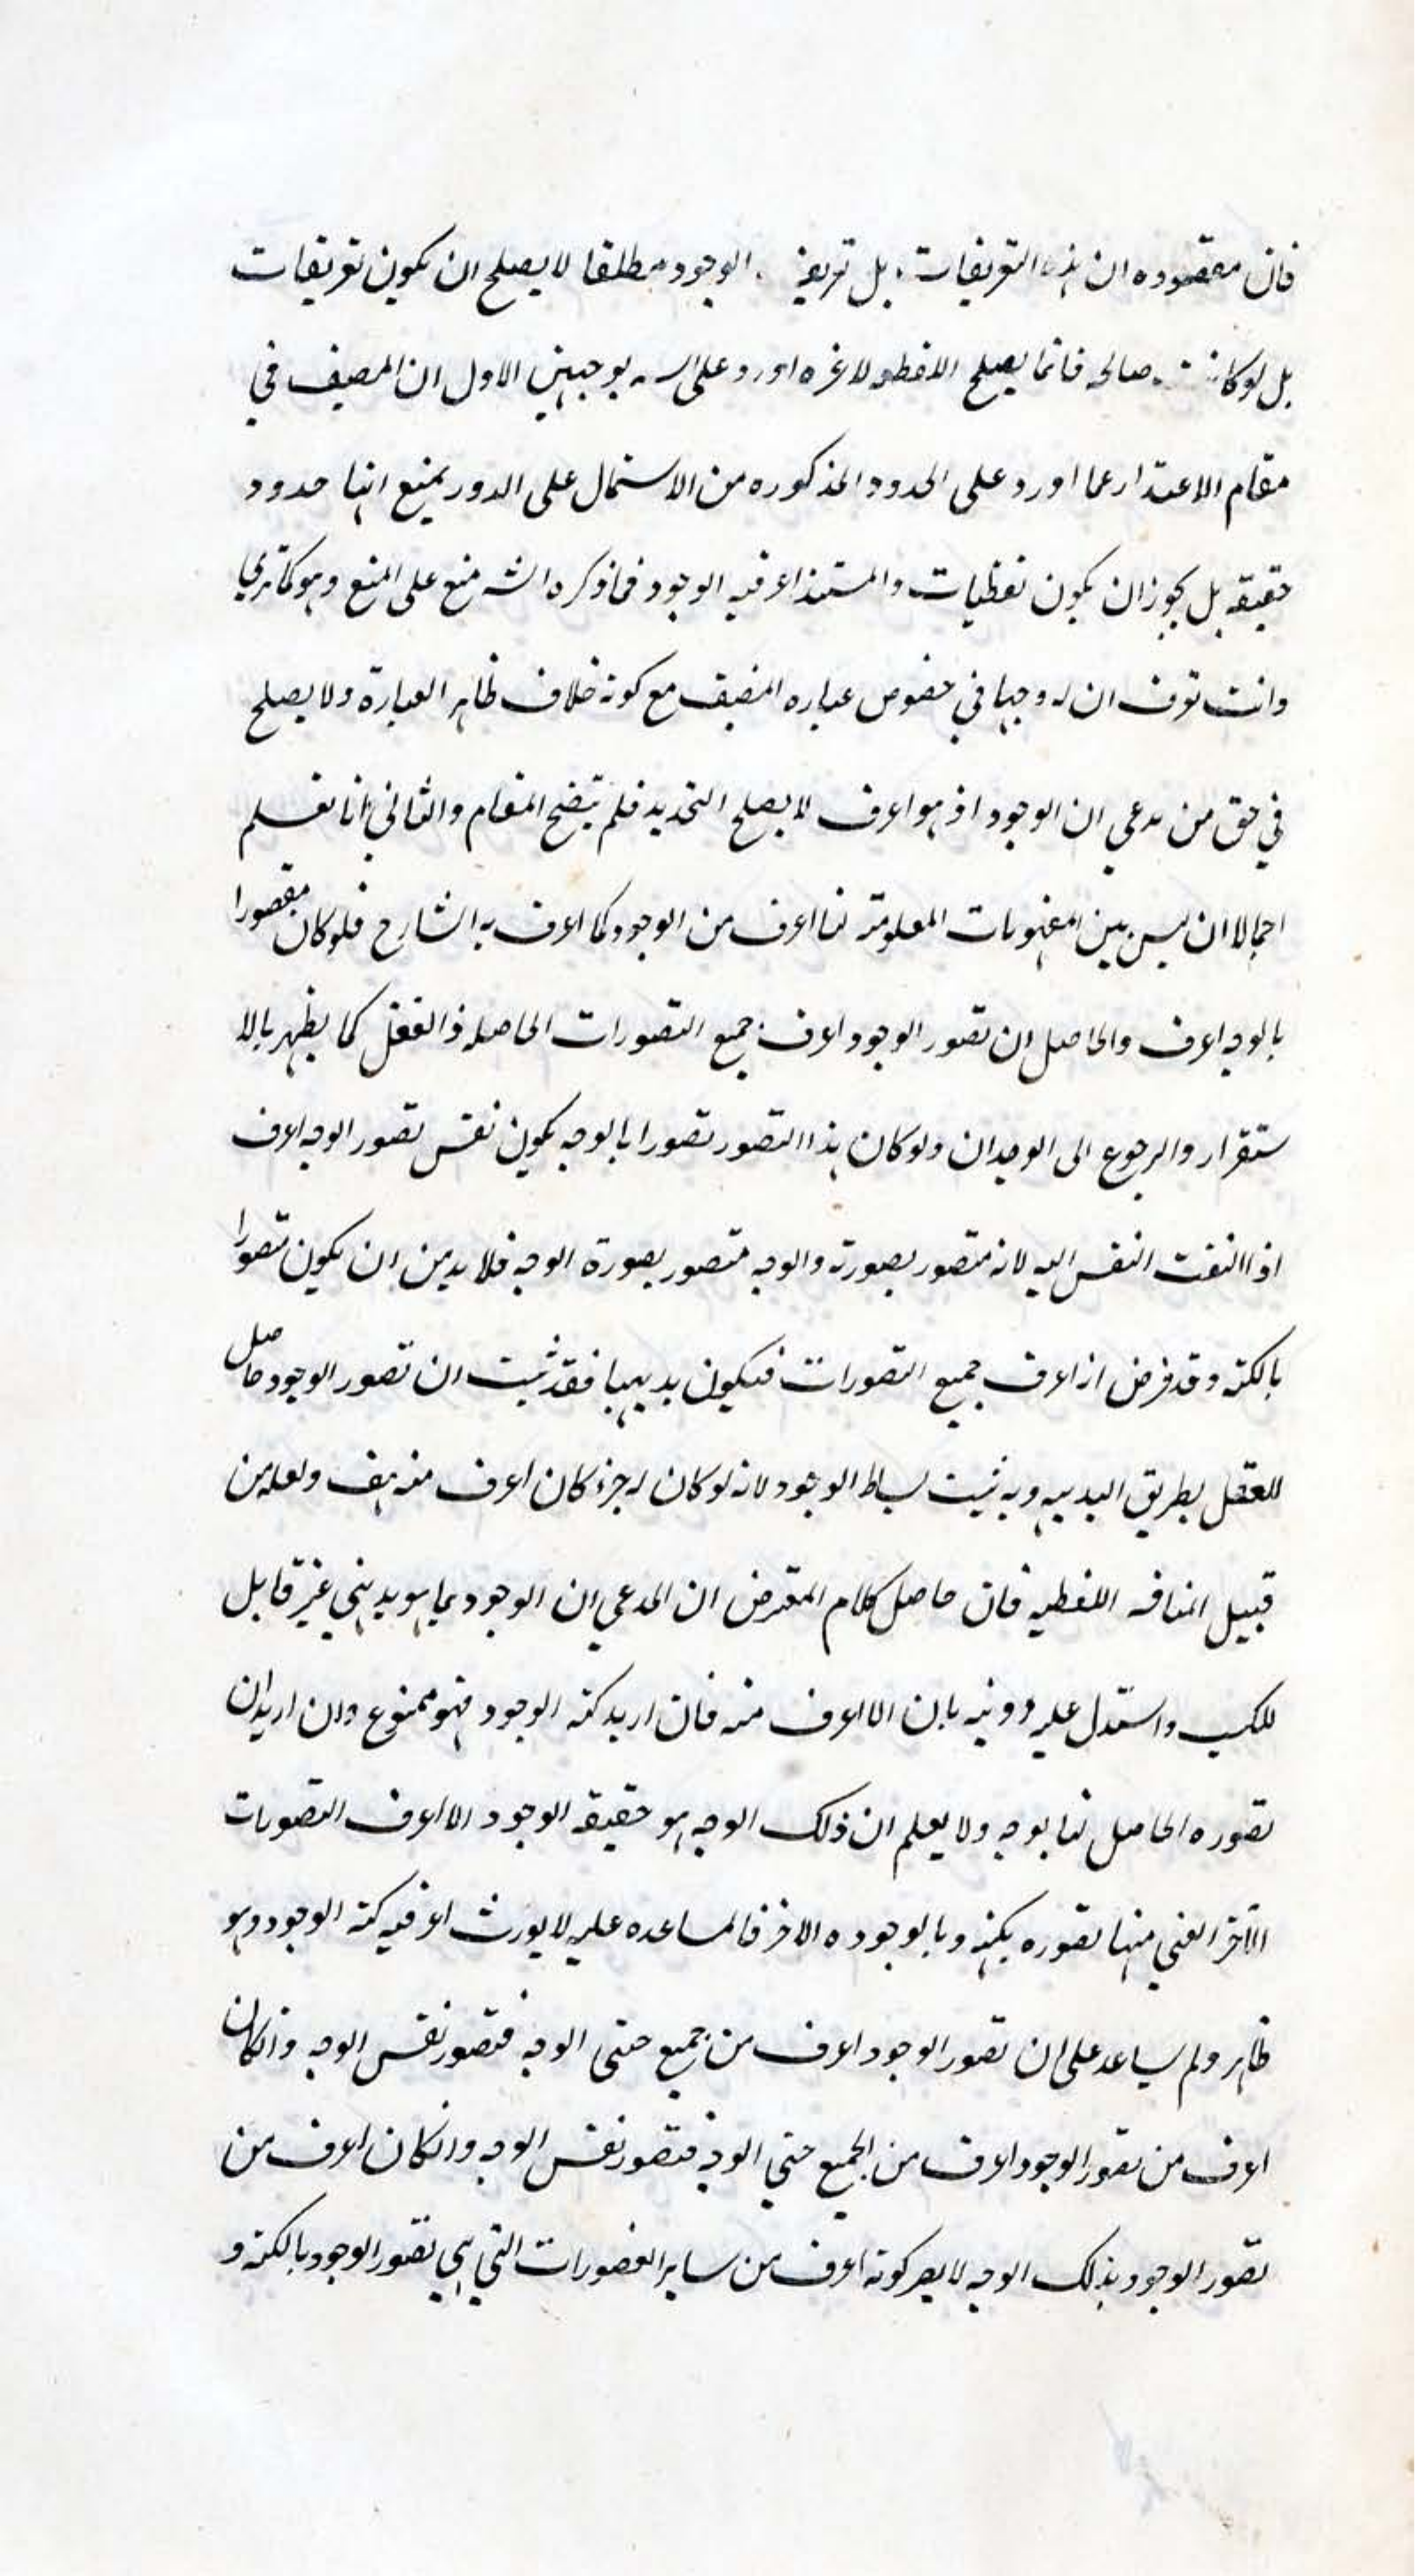 فان مقصوده ان هذه التعريفات بل تعريف الوجود مطلقا لا يصلح ان يكون تعريفات
بل لو كانت صالحه فانما يصلح لا غيره اورد على بوجهين الاول ان المصنف في
مقام الاعتذار عما اورد على الحدود المذكوره من الاشتمال على الدور يمنع انها حدود
حقيقه بل يجوز ان يكون لفظيات والمستند اعرفيه الوجود فما ذكره الشه منع على المنع وهو كما ترى
وانت تعرف ان له وجها في خصوص عباره المصنف مع كونه خلاف ظاهر العبارة ولا يصلح
في حق من يدعي ان الوجود اذ هو اعرف لا يصلح التحديد فلم يتضح المقام والثاني انا نعلم
اجمالا ان ليس بين المفهومات المعلومة لنا اعرف من الوجود كما اعرف به الشارح فلو كان مقصورا
بالوجه اعرف والحاصل ان تصور الوجود اعرف جميع التصورات الحاصله في العقل كما يظهر بالا
ستقرار والرجوع الى الوجدان ولو كان هذا التصور تصورا بالوجه يكون نفس تصور الوجه اعرف
اذا التفت النفس اليه لانه متصور بصورته والوجه متصور بصورة الوجه فلا بد من ان يكون متصورا
بالكنه وقد فرض انه اعرف جميع التصورات فيكون بديهيا فقد ثبت ان تصور الوجود حاصل
للعقل بطريق البديهه وبه ثبت بساط الوجود لانه لو كان له جزء كان اعرف منه هف ولعله من
قبيل المنافه اللفظيه فان حاصل كلام المعترض ان المدعي ان الوجود بما هو بديهي غير قابل
للكسب واستدل عليه دونيه بان لا اعرف منه فان اريد كنه الوجود فهو ممنوع وان اريد ان
تصوره الحاصل لنا بوجه ولا يعلم ان ذلك الوجه هو حقيقه الوجود لا اعرف التصورات
الآخر اعني منها تصوره بكنهه وبالوجوده الاخر فالمساعده عليه لا يورث اعرفيه كنه الوجود وهو
ظاهر ولم يساعد على ان تصور الوجود اعرف من جميع حتى الوجه فتصور نفس الوجه وانكان
اعرف من تصور الوجود اعرف من الجميع حتي الوجه فتصور نفس الوجه وانكان اعرف من
تصور الوجود بذلك الوجه لا يصر كونه اعرف من ساير التصورات التي هي تصور الوجود بالكنه و